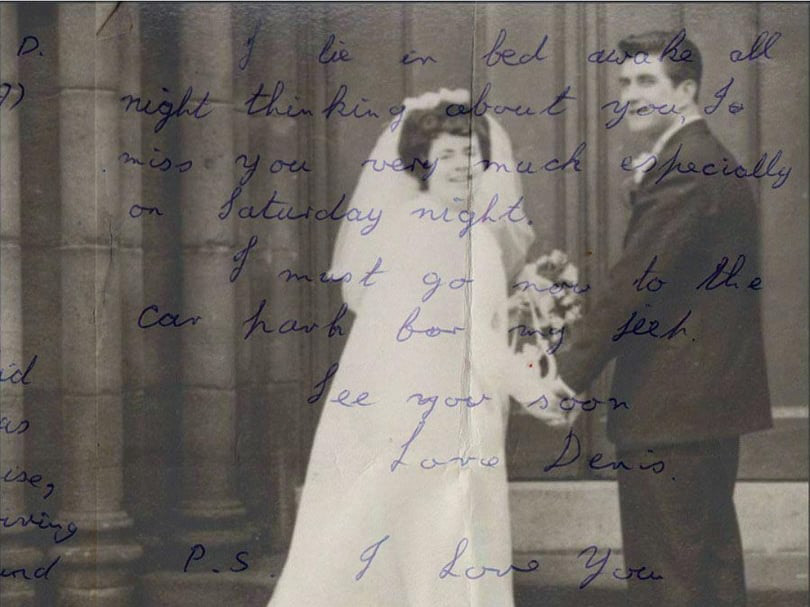 D. I lie in bed awake all
9) night thinking about you, I
miss you very much especially
on Saturday night.
I must go now to the
car park for my jeep.
id
See you soon
as
Love Denis.
ise,
iving
P.S. I Love You
and